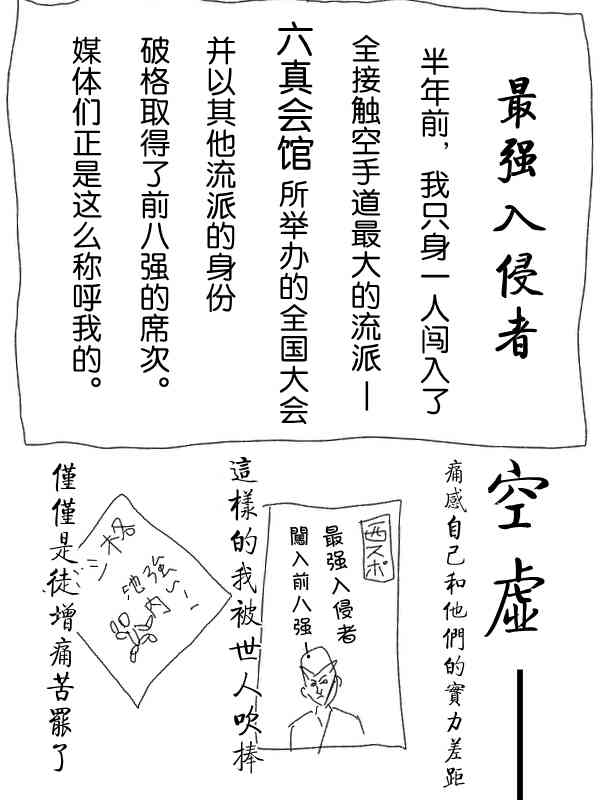 最强入侵者
半年前，我只身一人闯入了
全接触空手道最大的流派—
六真会馆所举办的全国大会
并以其他流派的身份
破格取得了前八强的席次。
媒体们正是这么称呼我的。
空虛—
痛感自己和他們的實力差距
西スポ
最强入侵者
闖入前八强
這樣的我被世人吹捧
僅僅是徒增痛苦罷了